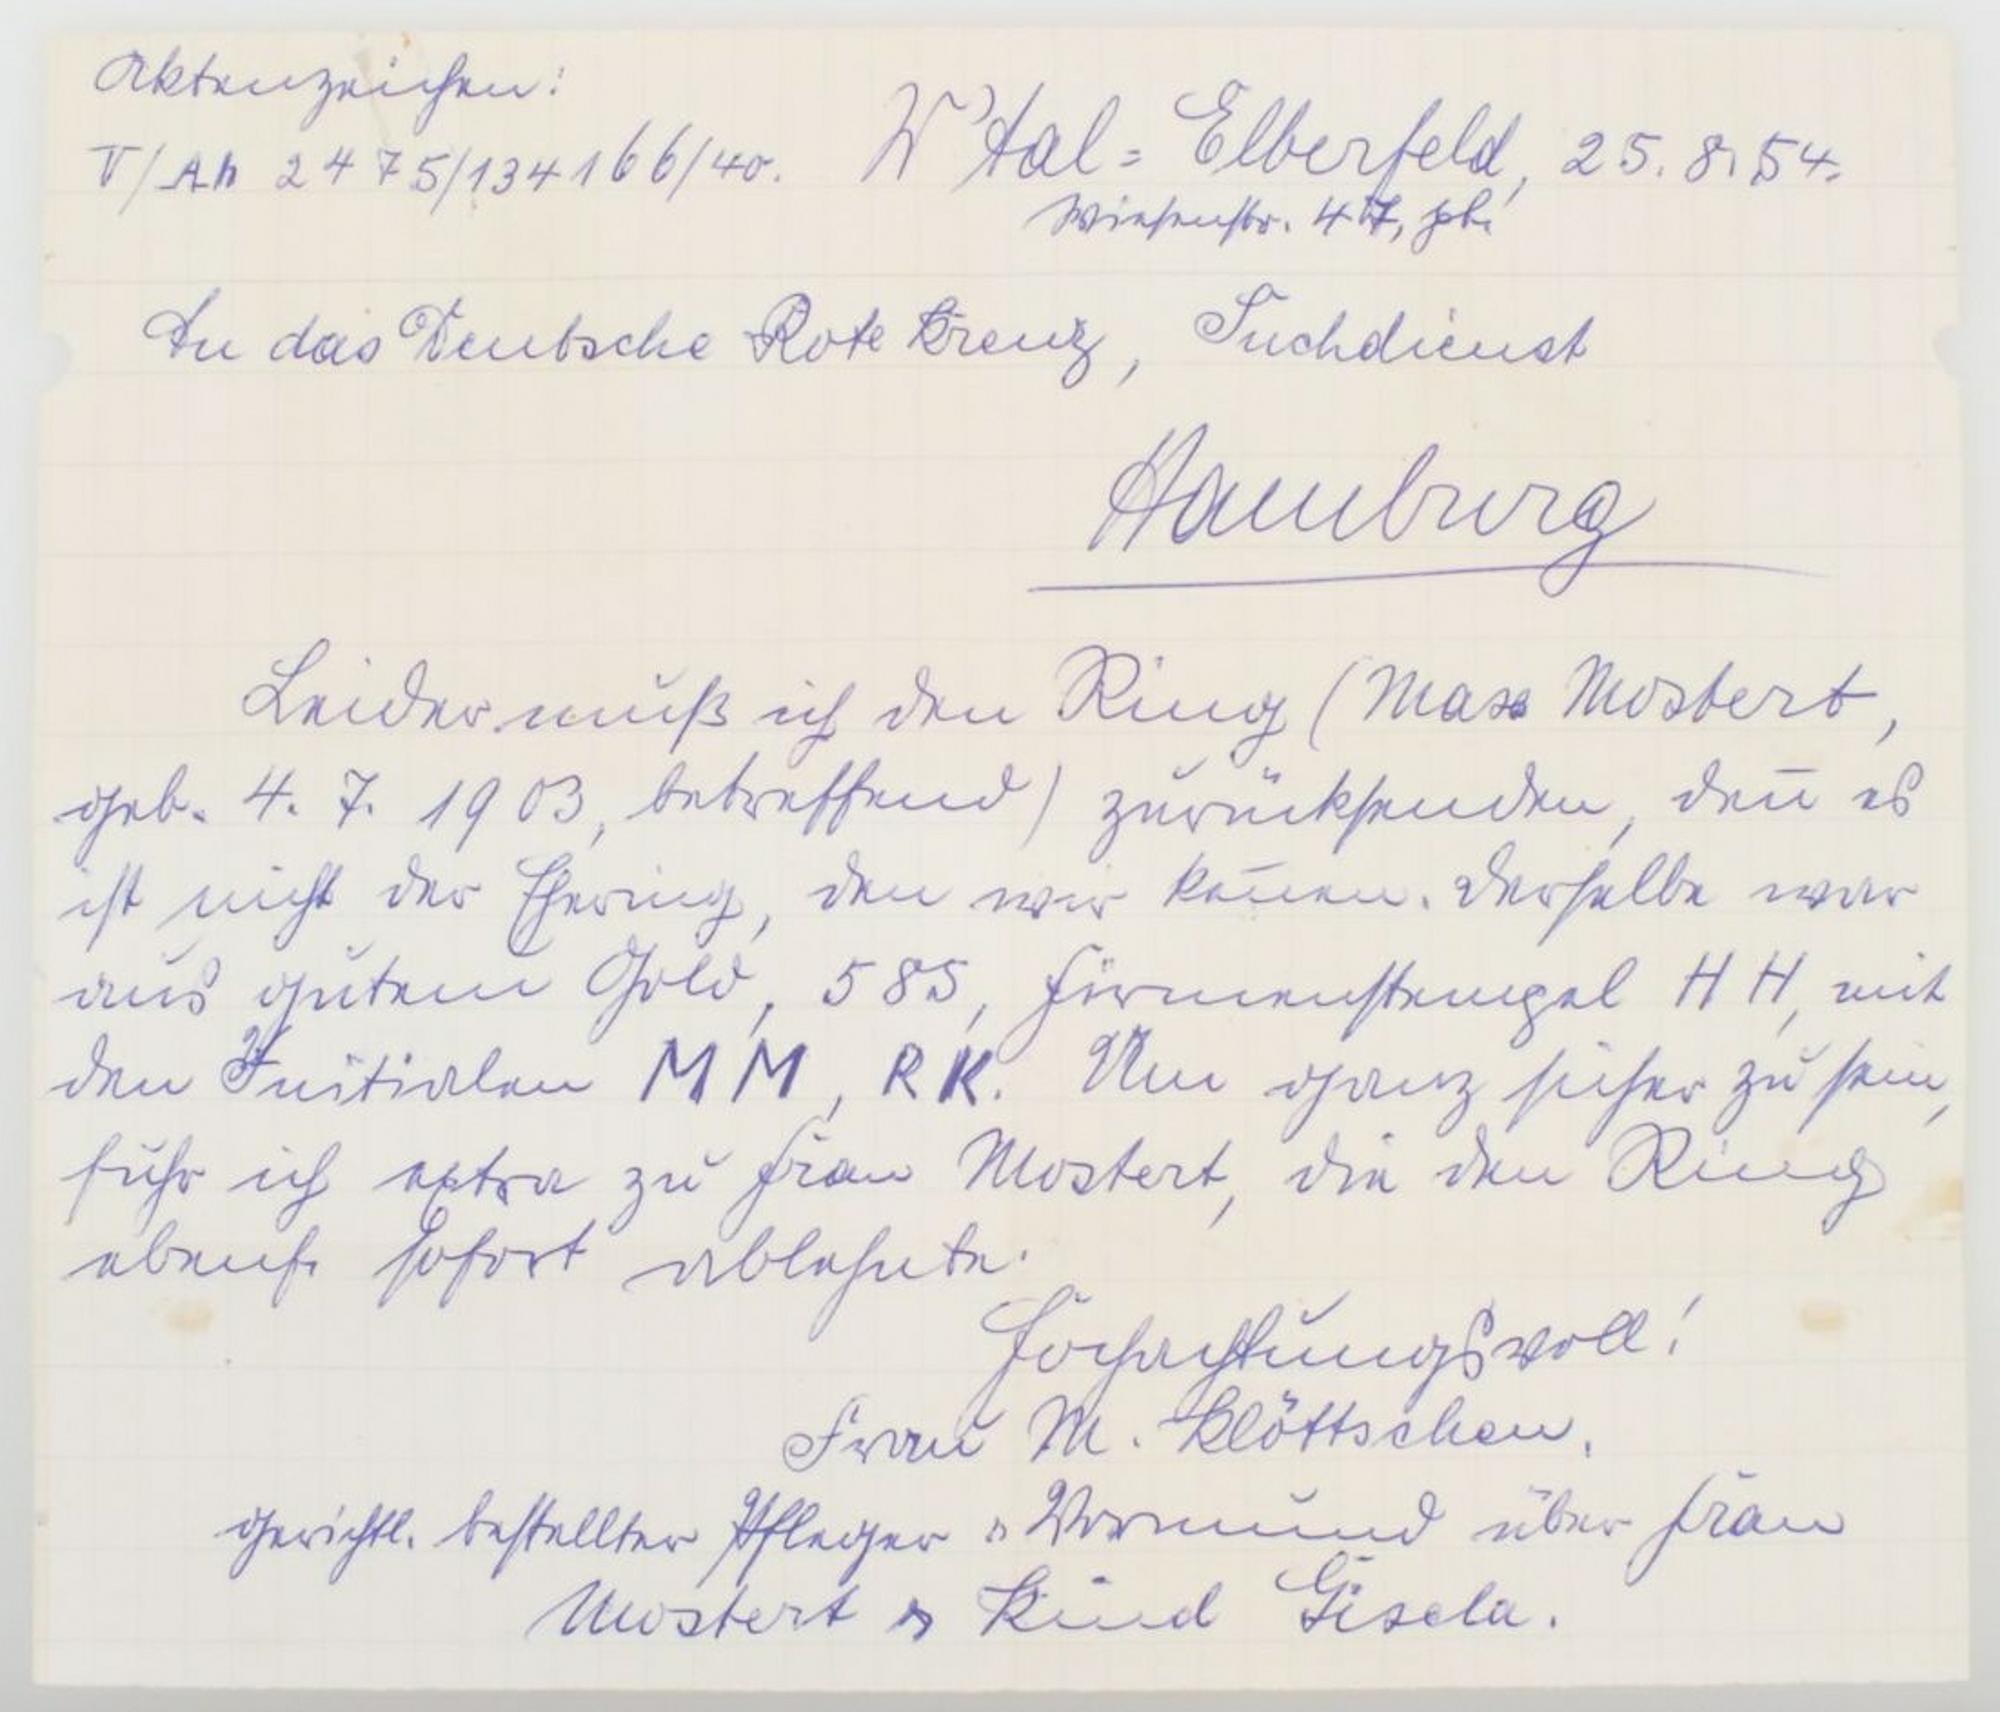 Aktenzeichen:
V/Ah 2475/134166/40. W'tal-Elberfeld, 25.8.54.
Wiesenstr. 47, ptr.
An das Deutsche Rote Kreuz, Suchdienst
Hamburg
Leider muß ich den Ring (Max Mostert,
geb. 4. 7. 1903, betreffend) zurücksenden, den̄ es
ist nicht der Ehering, den wir ken̄en. Derselbe war
aus gutem Gold, 585, Firmenstempel HH, mit
den Initialen MM, RK. Um ganz sicher zu sein,
fuhr ich extra zu Frau Mostert, die den Ring
ebenf. sofort ablehnte.
Hochachtungsvoll!
Frau M. Klöttschen.
gerichtl. bestellter Pfleger u Vormund über Frau
Mostert u Kind Gisela.